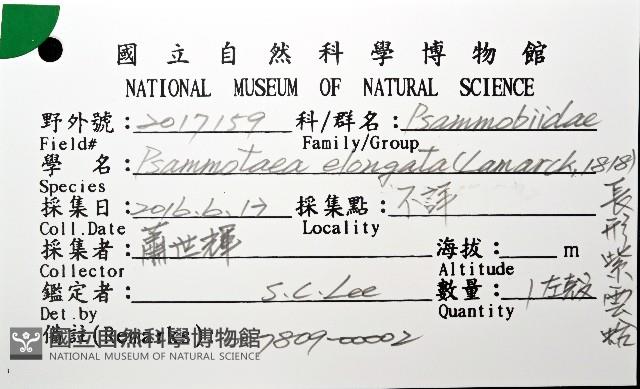 國立自然科學博物館
NATIONAL MUSEUM OF NATURAL SCIENCE
野外號：2017159 科/群名：Psammobiidae
Field# Family/Group
學 名：Psammotaea elongata (Lamarck, 1818)
Species
長形紫雲蛤
採集日：2016.6.17 採集點：不詳
Coll.Date Locality
採集者：蕭世輝 海拔： m
Collector Altitude
鑑定者： S.C.Lee 數量：1左殼
Det.by Quantity
備註(Remarks) 7809-00002
國立自然科學博物館
NATIONAL MUSEUM OF NATURAL SCIENCE